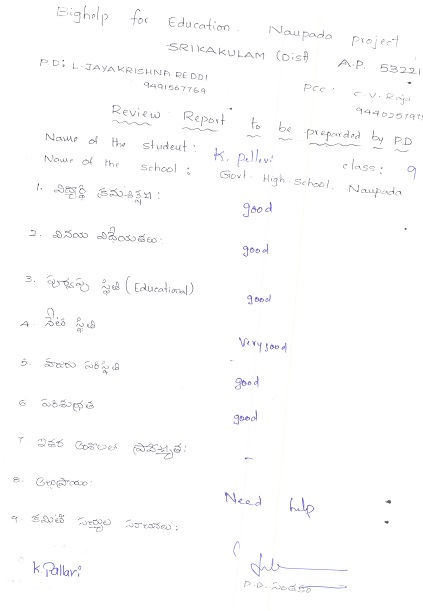 Bighelp for Education. Naupada project
SRIKAKULAM (Dist) A.P. 53221
P.D: L. JAYAKRISHNA REDDI PCC: C.V. Raja
9491567769 944025797
Review Report to be preparded by P.D
Name of the student: K. Pallavi class: 9
Name of the school: Govt. High. School, Naupada
1. విద్యార్థి క్రమశిక్షణ: good
2. వినయ విధేయతలు: good
3. పూర్వపు స్థితి (Educational) good
4. నేటి స్థితి Very good
5. హాజరు పరిస్థితి good
6 పరిశుభ్రత good
7 ఇతర అంశాలలో ప్రావీణ్యత: -
8. అభిప్రాయం: Need help
9. కమిటీ సభ్యుల సూచనలు:
K Pallavi
P.D. సంతకం